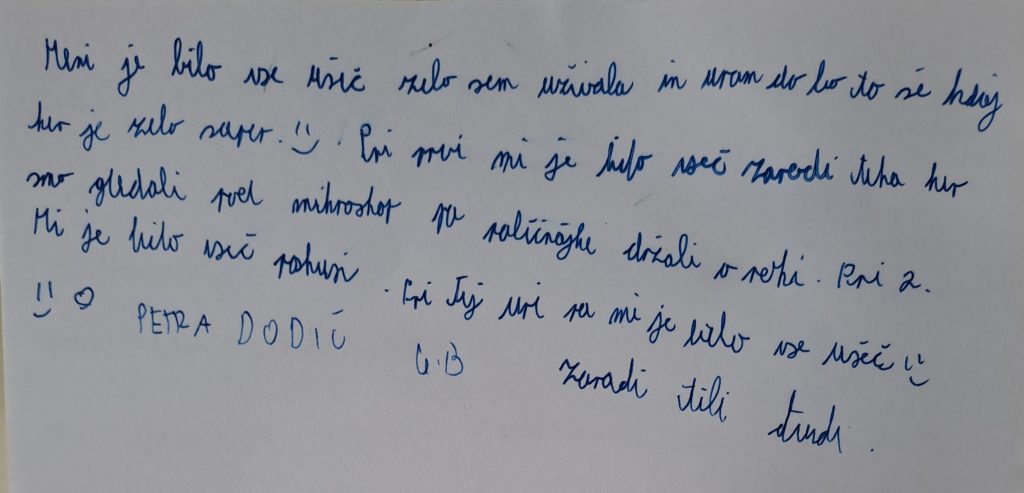 Meni je bilo vse všeč zelo sem uživala in upam do bo to še kdaj
ker je zelo super. :) Pri prvi mi je bilo všeč zaradi teha ker
smo gledali pod mikroskop pa različnojke držali v roki. Pri 2.
Mi je bilo všeč pokusi. Pri tej uri pa mi je bilo vse všeč :)
:) ♡ PETRA DODIČ 4.B zaradi tili tudi.